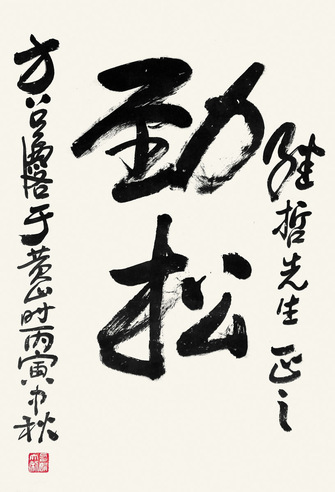 哲先生正之
劲松
方召麐于黄山时丙寅中秋